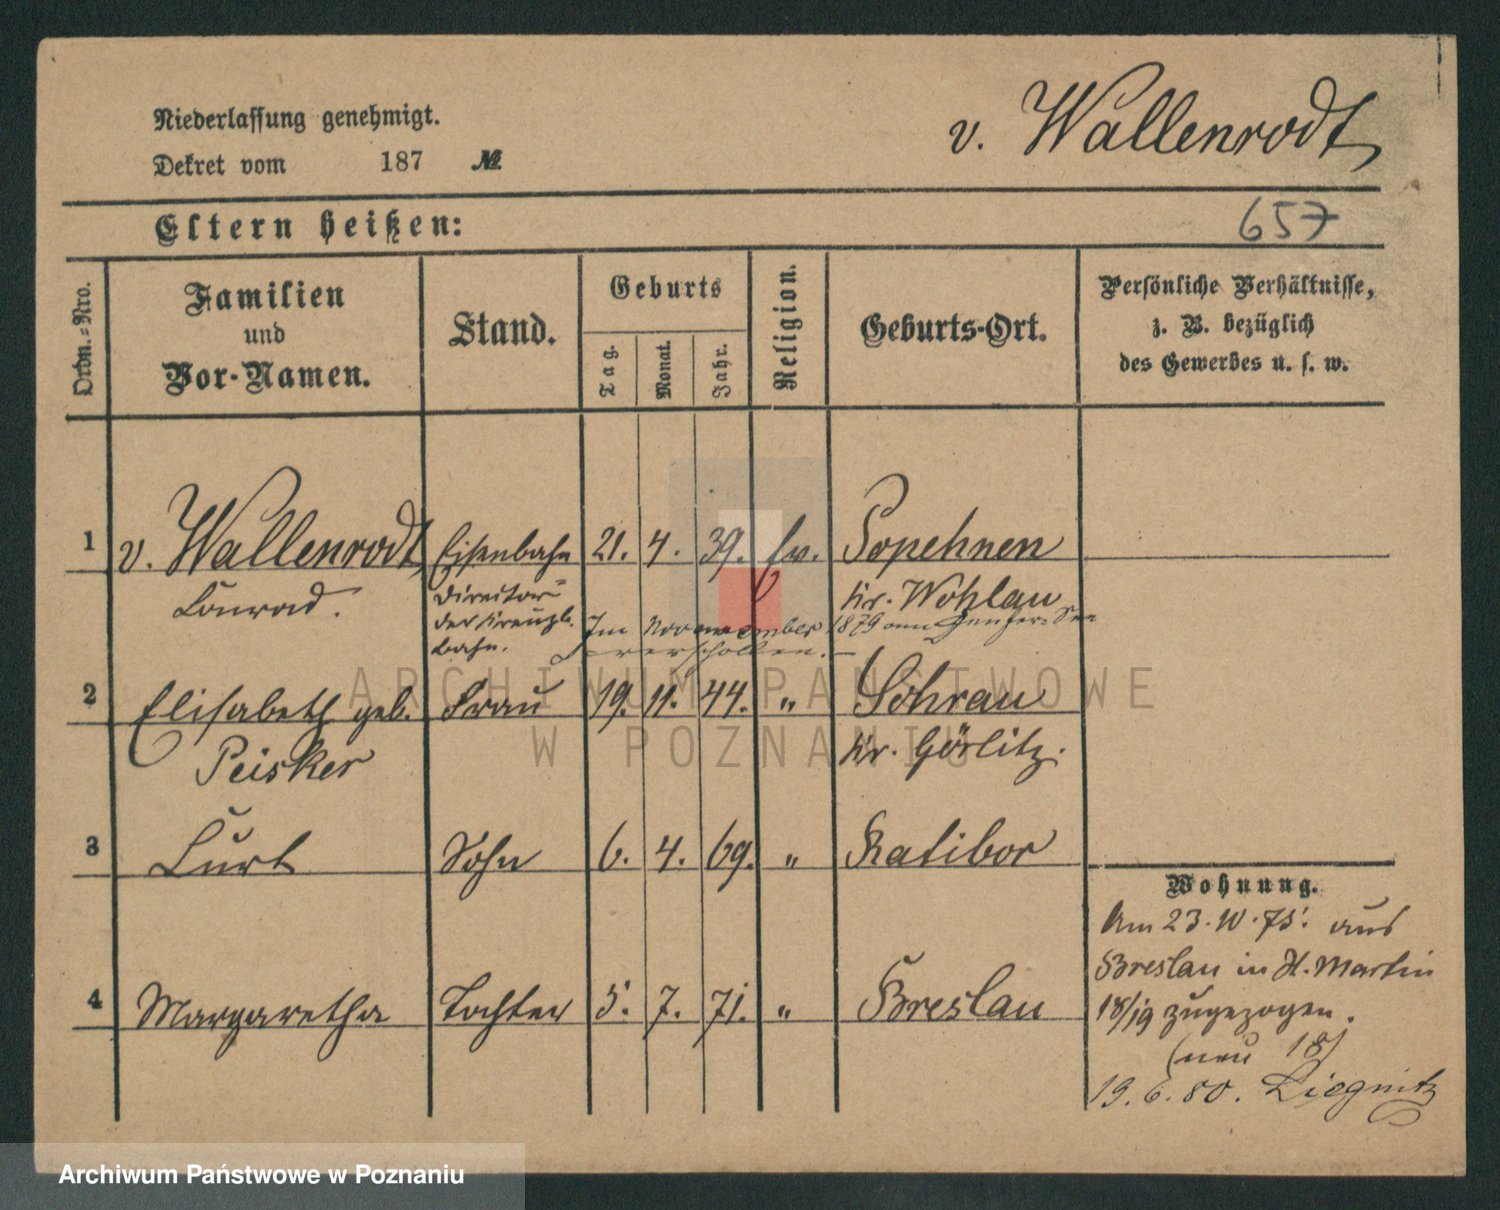 v. Wallenrodt
Niederlassung genehmigt.
Dekret vom 187 №
Eltern heißen:
657
Ordn.-Nro.
Familien
und
Vor-Namen.
Stand.
Geburts
Tag.
Monat.
Jahr.
Religion.
Geburts-Ort.
Persönliche Verhältnisse,
z. B. bezüglich
des Gewerbes u. s. w.
1 v. Wallenrodt Eisenbahn 21. 4. 39. ev. Popehnen
Conrad. Director kr. Wohlau
der Kreuzb. Im November 1879 am Genfer-See
bahn. verschollen.
2 Elisabeth geb. Frau 19. 11. 44. " Sohrau
Peisker kr. Görlitz.
3 Curt Sohn 6. 4. 69. " Ratibor
4 Margaretha Tochter 5. 7. 71. " Breslau
Wohnung.
Am 23. 75. aus
Breslau in St. Martin
18/19 zugezogen.
(neu 18)
19. 6. 80. Liegnitz
ARCHIWUM PAŃSTWOWE
W POZNANIU
Archiwum Państwowe w Poznaniu